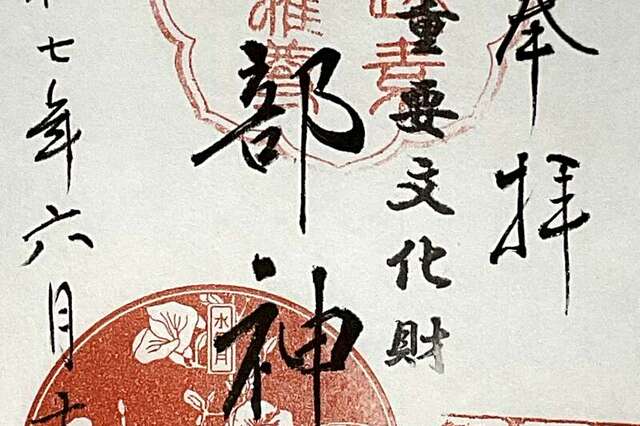 奉拝
重要文化財
部神
七年六月十
水無月